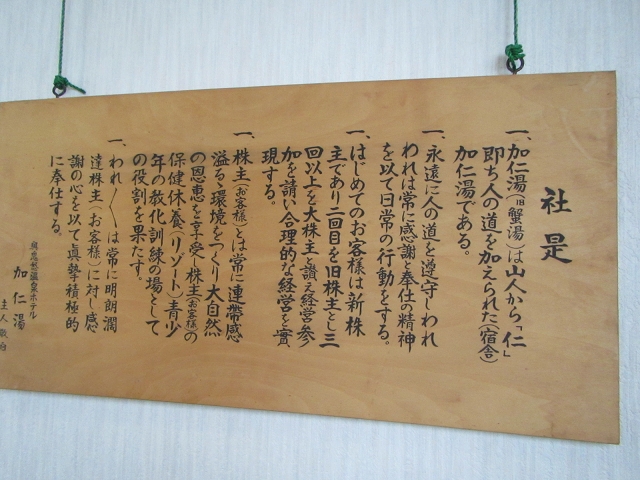 社是
一、加仁湯(旧蟹湯)は山人から「仁」
即ち人の道を加えられた(宿舎)
加仁湯である。
一、永遠に人の道を遵守しわれ
われは常に感謝と奉仕の精神
を以て日常の行動をする。
一、はじめてのお客様は新株
主であり二回目を旧株主とし三
回以上を大株主と讃え経営参
加を請い合理的な経営を實
現する。
一、株主(お客様)とは常に連帶感
溢るゝ環境をつくり大自然
の恩恵を享受し株主(お客様)の
保健休養(リゾート)青少
年の教化訓練の場として
の役割を果たす。
一、われ〱は常に明朗濶
達株主(お客様)に対し感
謝の心を以て眞摯積極的
に奉仕する。
奥鬼怒温泉ホテル
加仁湯
主人敬白